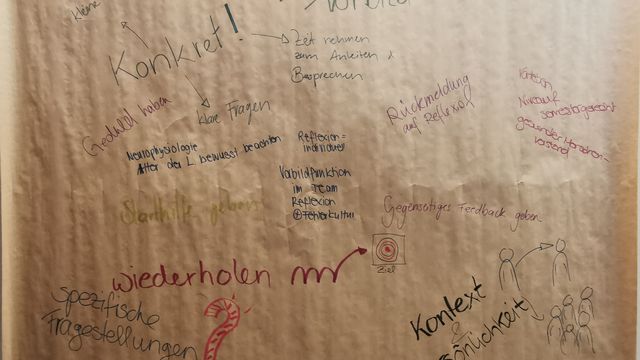 kleine
Konkret!
Zeit nehmen
zum Anleiten &
Besprechen
klare Fragen
Geduld haben
Rückmeldung
auf Reflexion
Niveau
semestergerecht
gesunder Menschen-
verstand
Neurophysiologie
Alter der L bewusst beachten
Reflexion =
individuell
Vorbildfunktion
im Team
Reflexion
Fehlerkultur
Starthilfe geben
Gegenseitiges Feedback geben
wiederholen
Ziel
spezifische
Fragestellungen
Kontext
&